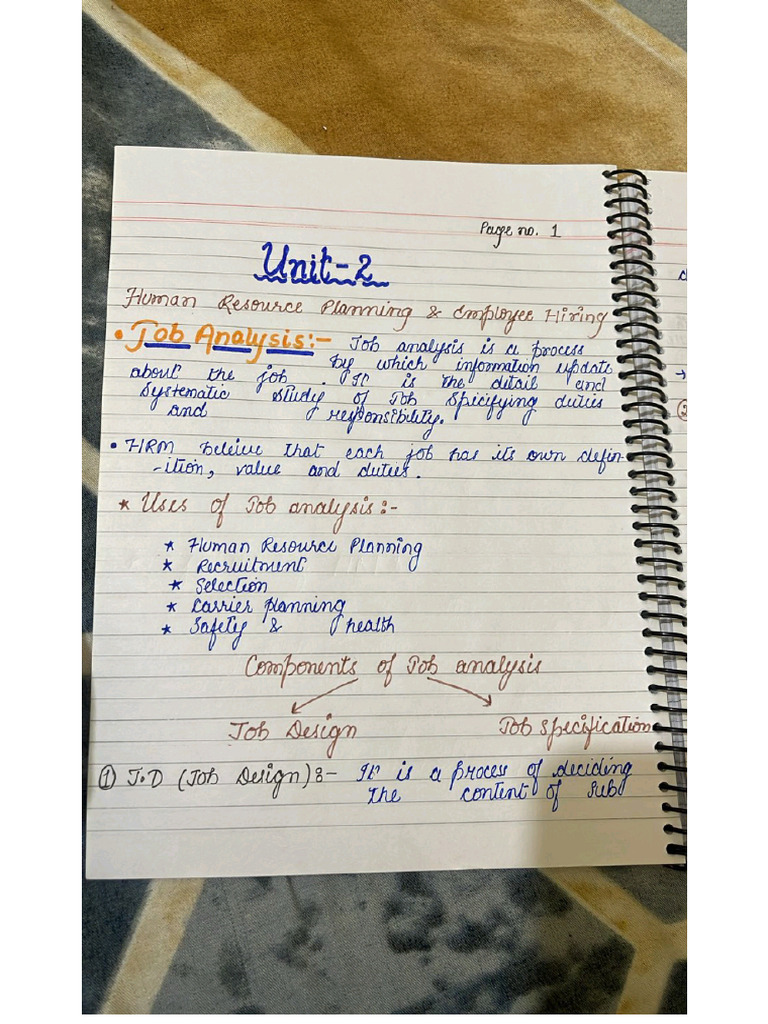 Page no. 1
Unit-2
Human Resource Planning & Employee Hiring
• Job Analysis:- Job analysis is a process
by which information update
about the job. It is the detail and
systematic study of Job spicifying duties
and responsibility.
• HRM beleive that each job has its own defin-
-ition, value and duties.
* Uses of Job analysis:-
* Human Resource Planning
* Recruitment
* Selection
* Carrier planning
* Safety & health
Components of Job analysis
Job Design Job Specification
① J.D (Job Design):- It is a process of deciding
the content of Sub